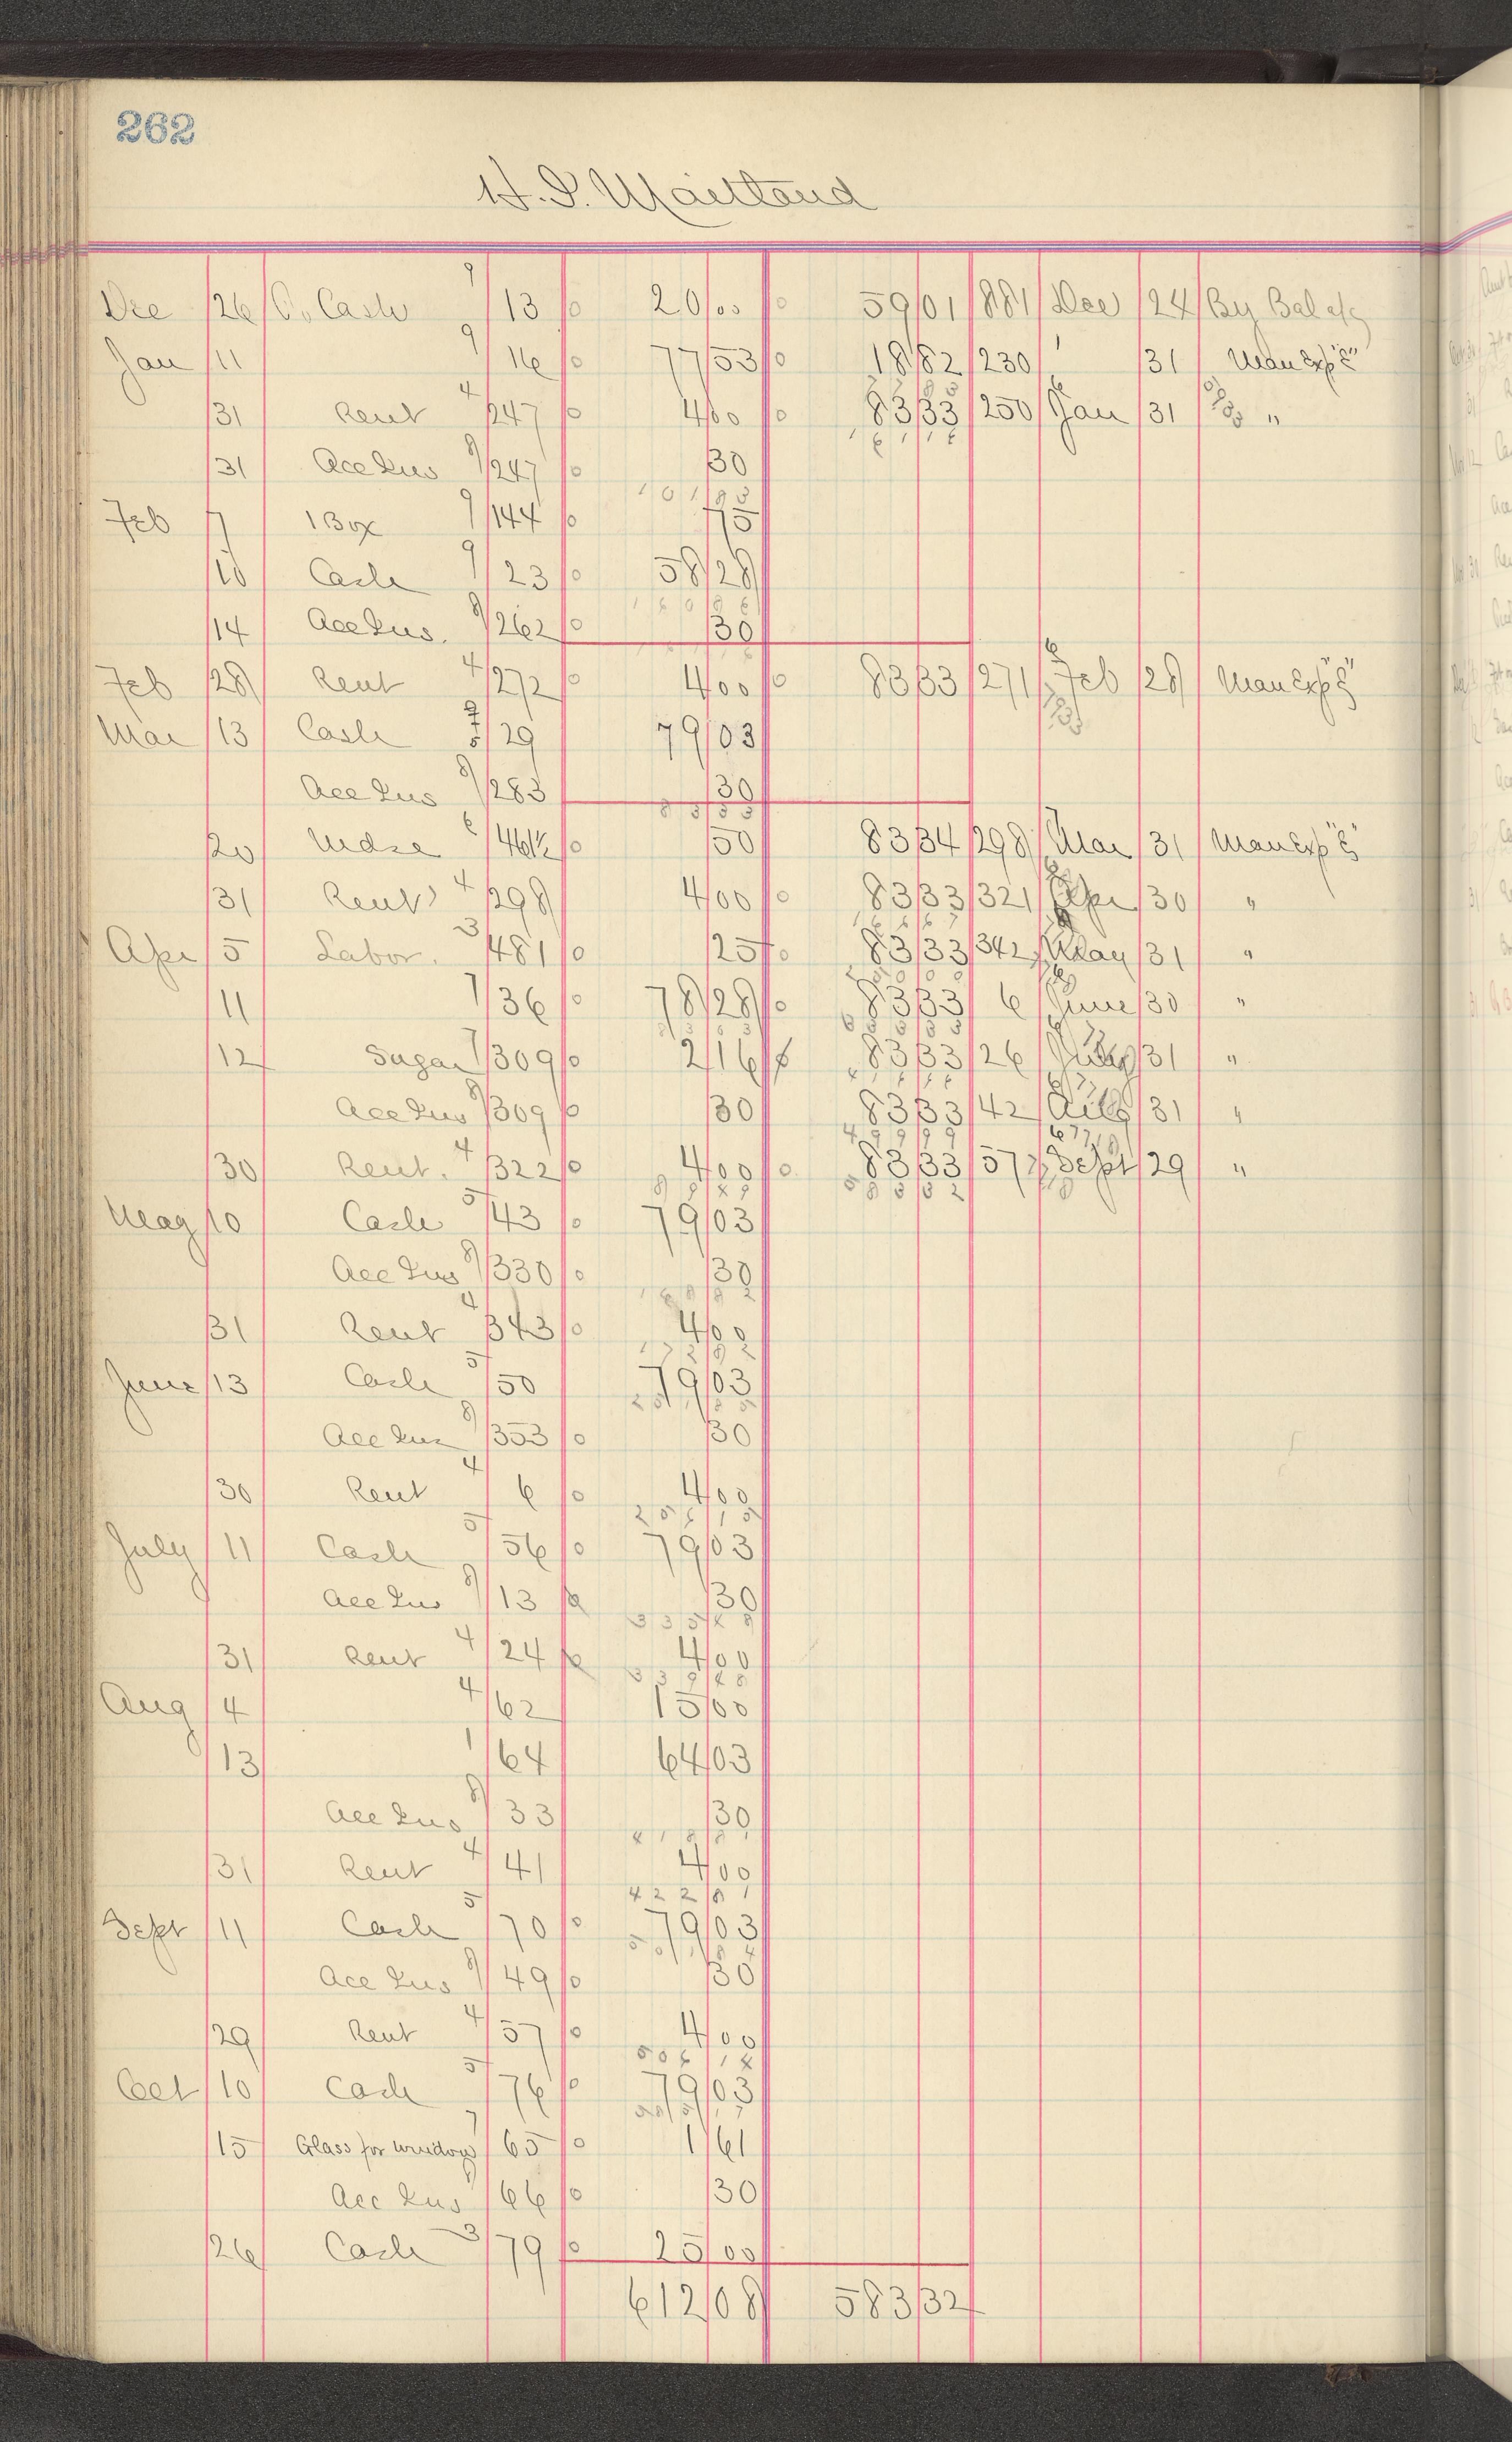 262
H. I. Maitland
Dec 26 Cash 9/13 20 00 59 01 881 Dec 24 By Bal a/c
Jan 11 9/16 77 53 18 82 230 " 31 Man Exp "E"
31 Rent 4/247 4 00 83 33 250 Jan 31 "
31 Acc Ins 8/247 30
Feb 7 1 Box 9/144 75
10 Cash 9/23 58 28
14 Acc Ins. 8/262 30
Feb 28 Rent 4/272 4 00 83 33 271 Feb 28 Man Exp "E"
Mar 13 Cash 29 79 03
Acc Ins 8/283 30
20 Mdse 6/461½ 50 83 34 298 Mar 31 Man Exp "E"
31 Rent 4/298 4 00 83 33 321 Apr 30 "
Apr 5 Labor. 3/481 25 83 33 342 May 31 "
11 36 78 28 83 33 6 June 30 "
12 Sugar 7/309 2 16 83 33 26 July 31 "
Acc Ins 8/309 30 83 33 42 Aug 31 "
30 Rent. 4/322 4 00 83 33 57 Sept 29 "
May 10 Cash 5/43 79 03
Acc Ins 8/330 30
31 Rent 4/343 4 00
June 13 Cash 5/50 79 03
Acc Ins 8/353 30
30 Rent 4/6 4 00
July 11 Cash 5/56 79 03
Acc Ins 8/13 30
31 Rent 4/24 4 00
Aug 4 4/62 15 00
13 1/64 64 03
Acc Ins 8/33 30
31 Rent 4/41 4 00
Sept 11 Cash 5/70 79 03
Acc Ins 8/49 30
29 Rent 4/57 4 00
Oct 10 Cash 5/76 79 03
15 Glass for window 7/65 1 61
Acc Ins 66 30
26 Cash 3/79 25 00
612 08 583 32